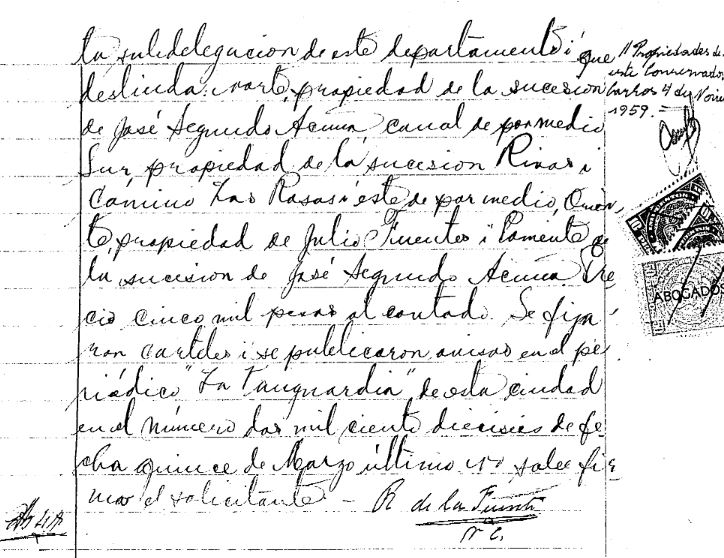 ta subdelegacion de este departamento i que
deslinda: norte, propiedad de la sucesion
de José Segundo Acuña, canal de por medio
Sur, propiedad de la sucesion Rivas i
Camino Las Rosas i este de por medio, Orien
te, propiedad de Julio Fuentes i Poniente de
la sucesion de José Segundo Acuña. Pre
cio cinco mil pesos al contado. Se fija
ron carteles i se publicaron avisos en el pe
riódico "La Vanguardia" de esta ciudad
en el número dos mil ciento dieciseis de fe
cha quince de Marzo último
mar el solicitante — R de la Fuente
Propiedades de
este Conservador
1959.
ABOGADOS